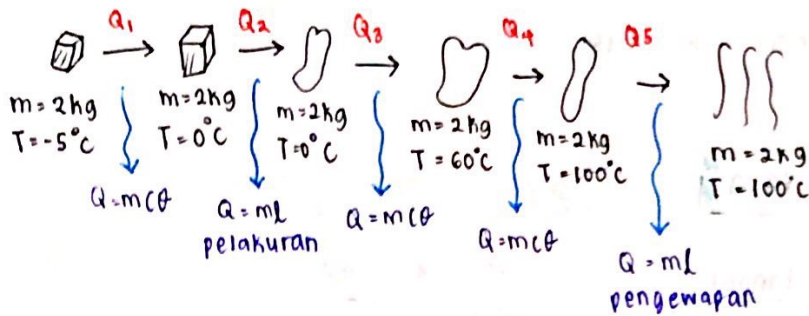 Q1 Q2 Q3 Q4 Q5
m = 2kg
T = -5°C
m = 2kg
T = 0°C
m = 2kg
T = 0°C
m = 2kg
T = 60°C
m = 2kg
T = 100°C
m = 2kg
T = 100°C
Q = mcθ
Q = ml
pelakuran
Q = mcθ
Q = mcθ
Q = ml
pengewapan